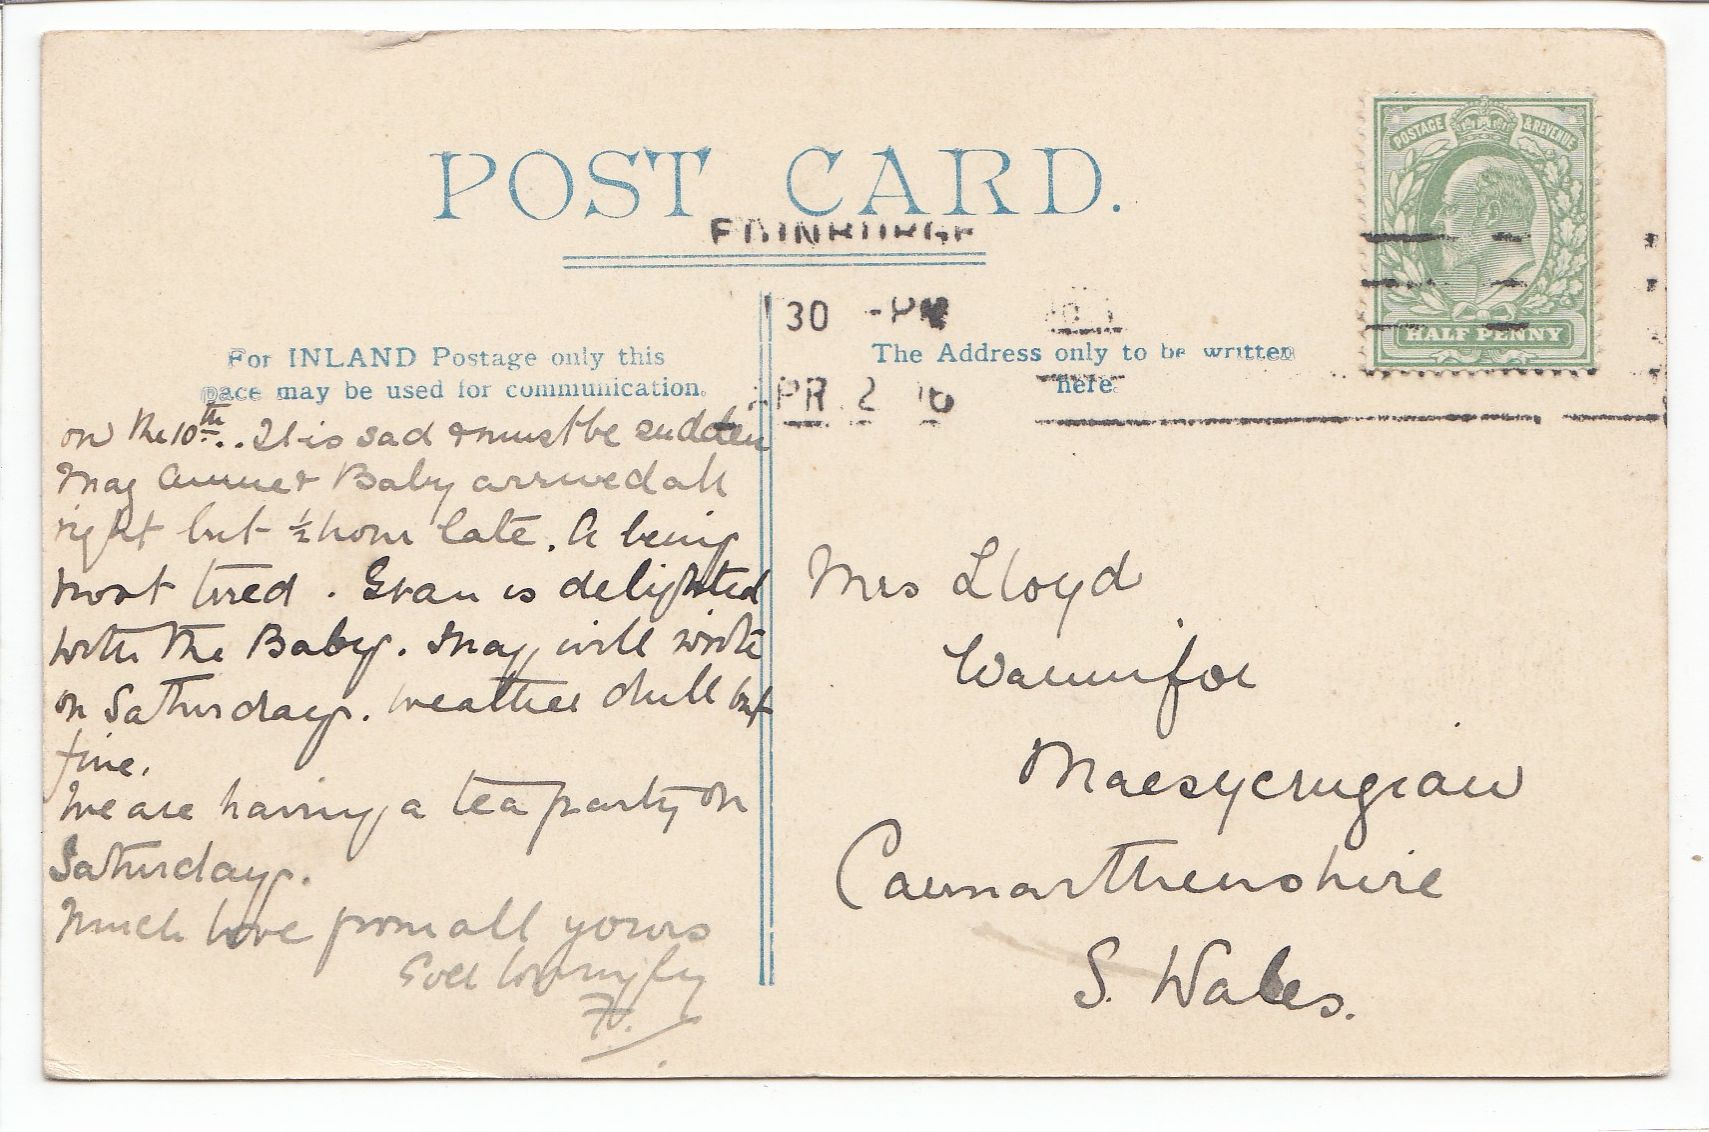 POST CARD.
EDINBURGH
30 -PM
APR 2
POSTAGE & REVENUE
HALF PENNY
For INLAND Postage only this
space may be used for communication.
The Address only to be written
here.
on the 10th.. It is sad & must be sudden
May Annie & Baby arrived all
right but ½ hour late. A being
most tired. Gran is delighted
with the Baby. May will write
on Saturday. weather dull but
fine.
We are having a tea party on
Saturday.
Much love from all yours
Ever lovingly
Mrs Lloyd
Waunifor
Maesycrugiau
Caermarthenshire
S. Wales.